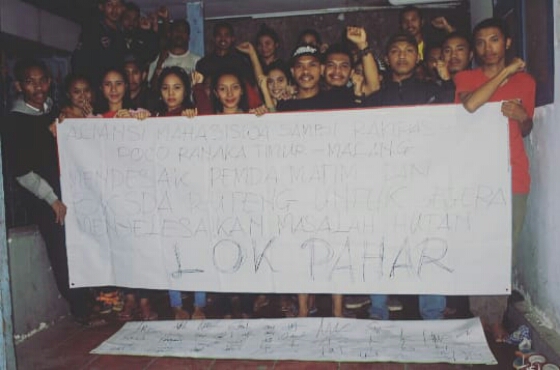 ALIANSI MAHASISWA SAMPI RAKTAS
POCO RANAKA TIMUR - MALANG
MENDESAK PEMDA MATIM DAN
RUTENG UNTUK SEGERA
MENYELESAIKAN MASALAH HUTAN
LOK PAHAR